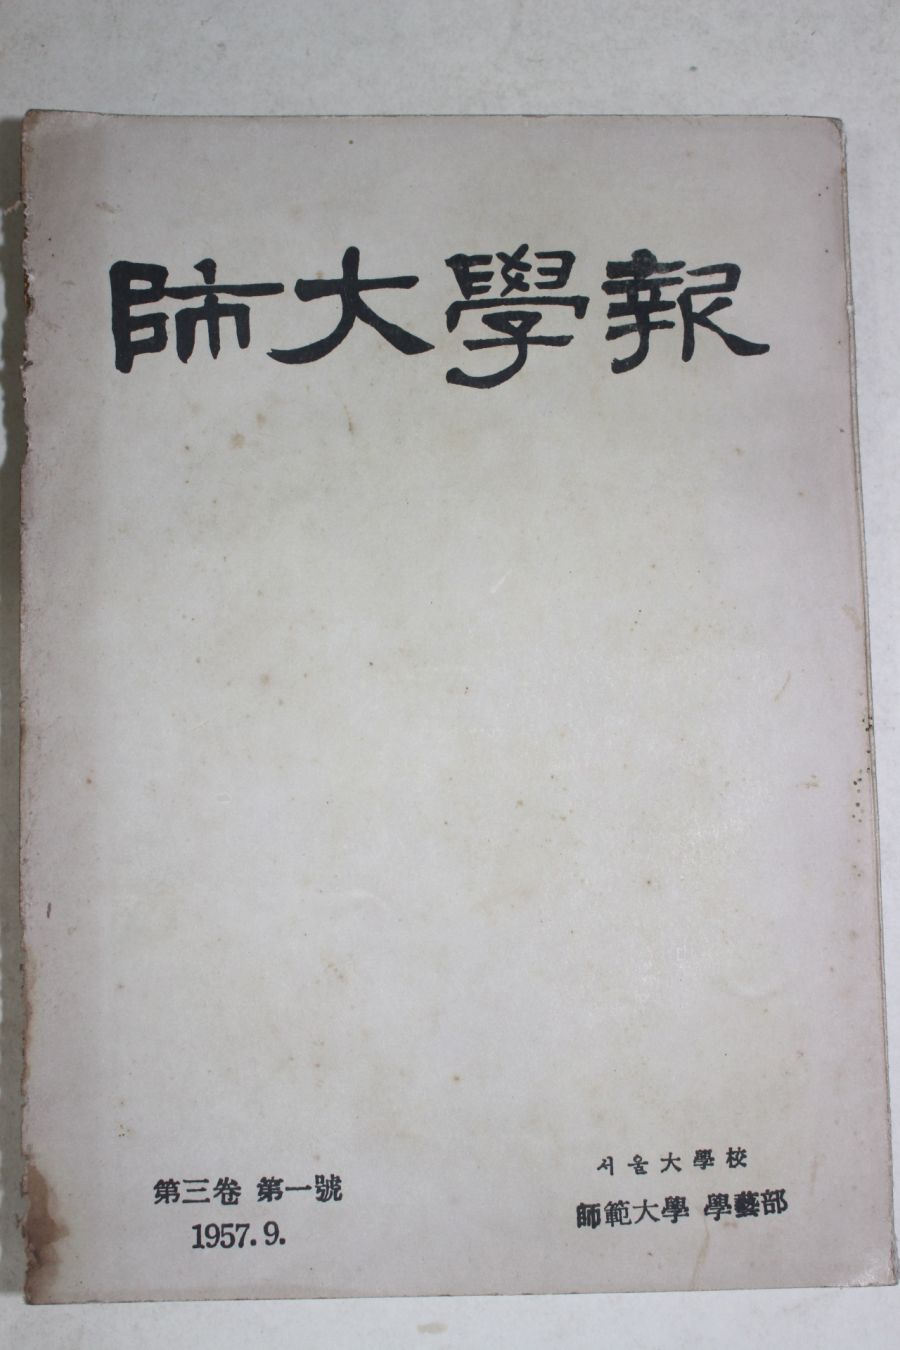 師大學報
第三卷 第一號
1957. 9.
서울大學校
師範大學 學藝部